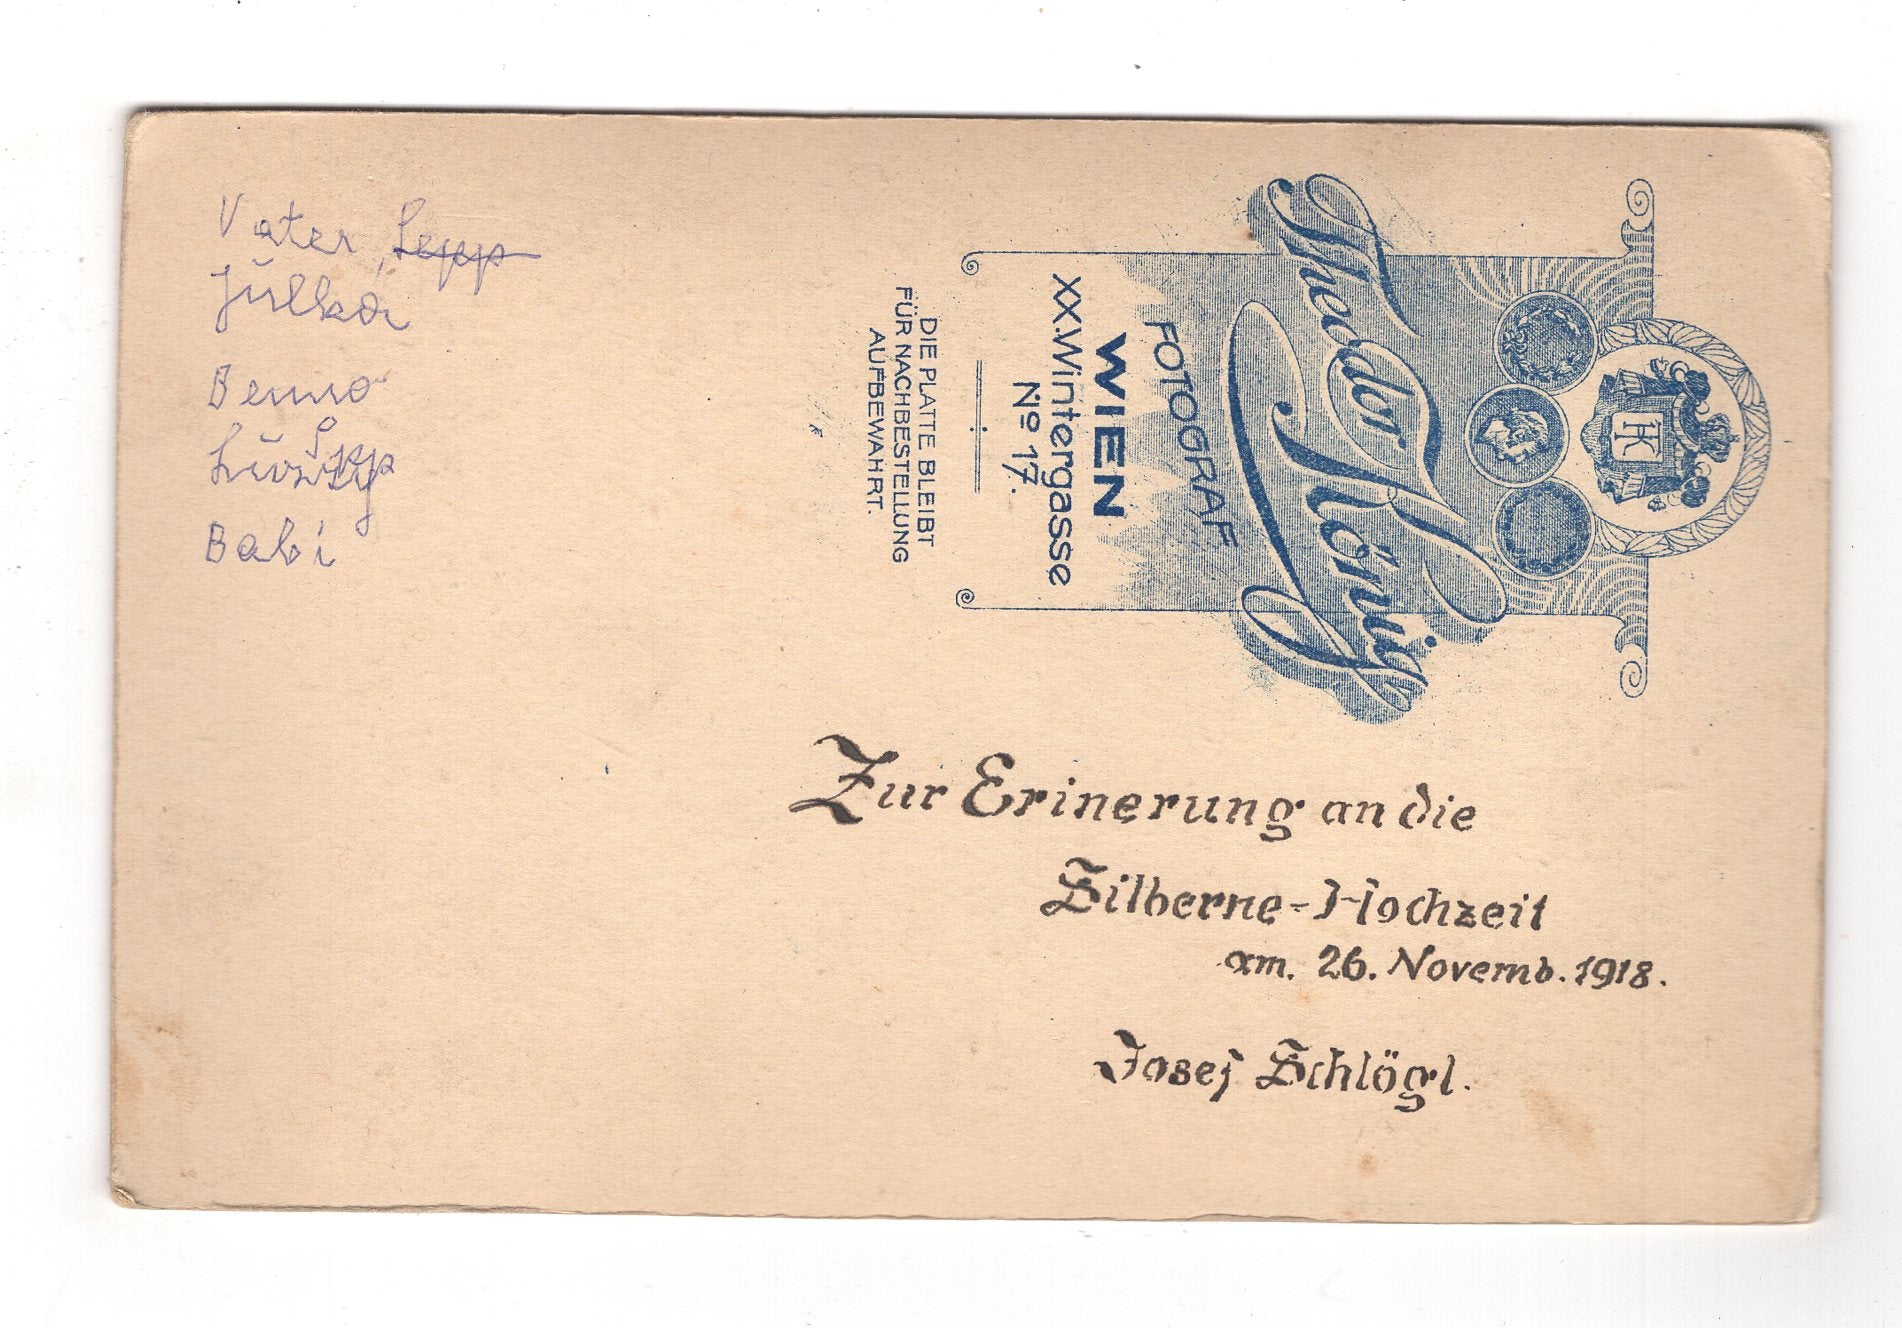 Vater, Sepp
Julka
Benno
Sepp
Babi
Theodor König
FOTOGRAF
WIEN
XX.Wintergasse
No 17.
DIE PLATTE BLEIBT
FÜR NACHBESTELLUNG
AUFBEWAHRT.
TK
Zur Erinerung an die
Silberne-Hochzeit
am. 26. Novemb. 1918.
Josef Schlögl.